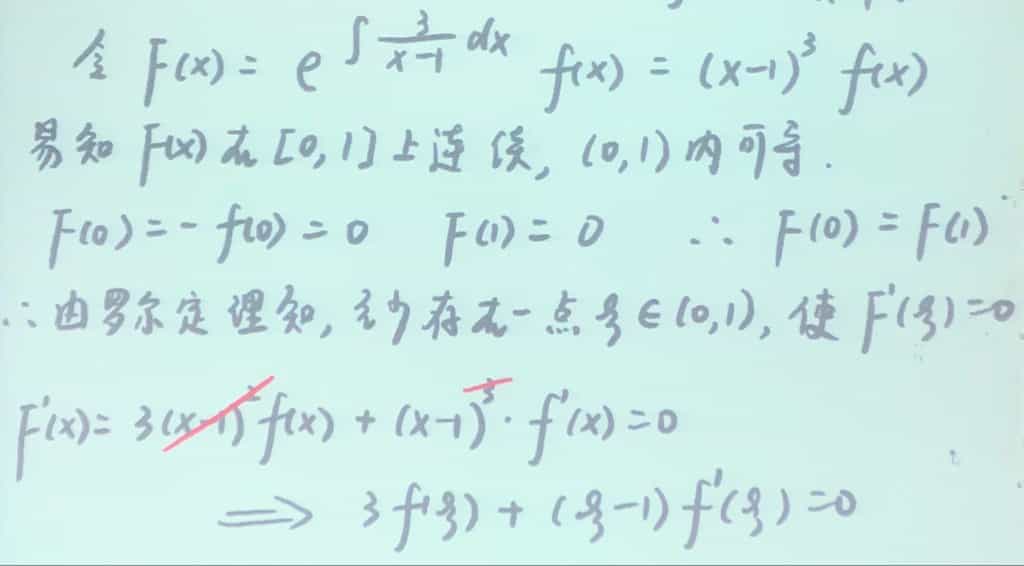 令 F(x) = e^{∫ 3/(x-1) dx} f(x) = (x-1)³ f(x)
易知 F(x) 在 [0, 1] 上连续, (0, 1) 内可导.
F(0) = - f(0) = 0 F(1) = 0 ∴ F(0) = F(1)
∴ 由罗尔定理知, 至少存在一点 ξ ∈ (0, 1), 使 F'(ξ) = 0
F'(x) = 3(x-1)² f(x) + (x-1)³ · f'(x) = 0
⟹ 3 f(ξ) + (ξ-1) f'(ξ) = 0